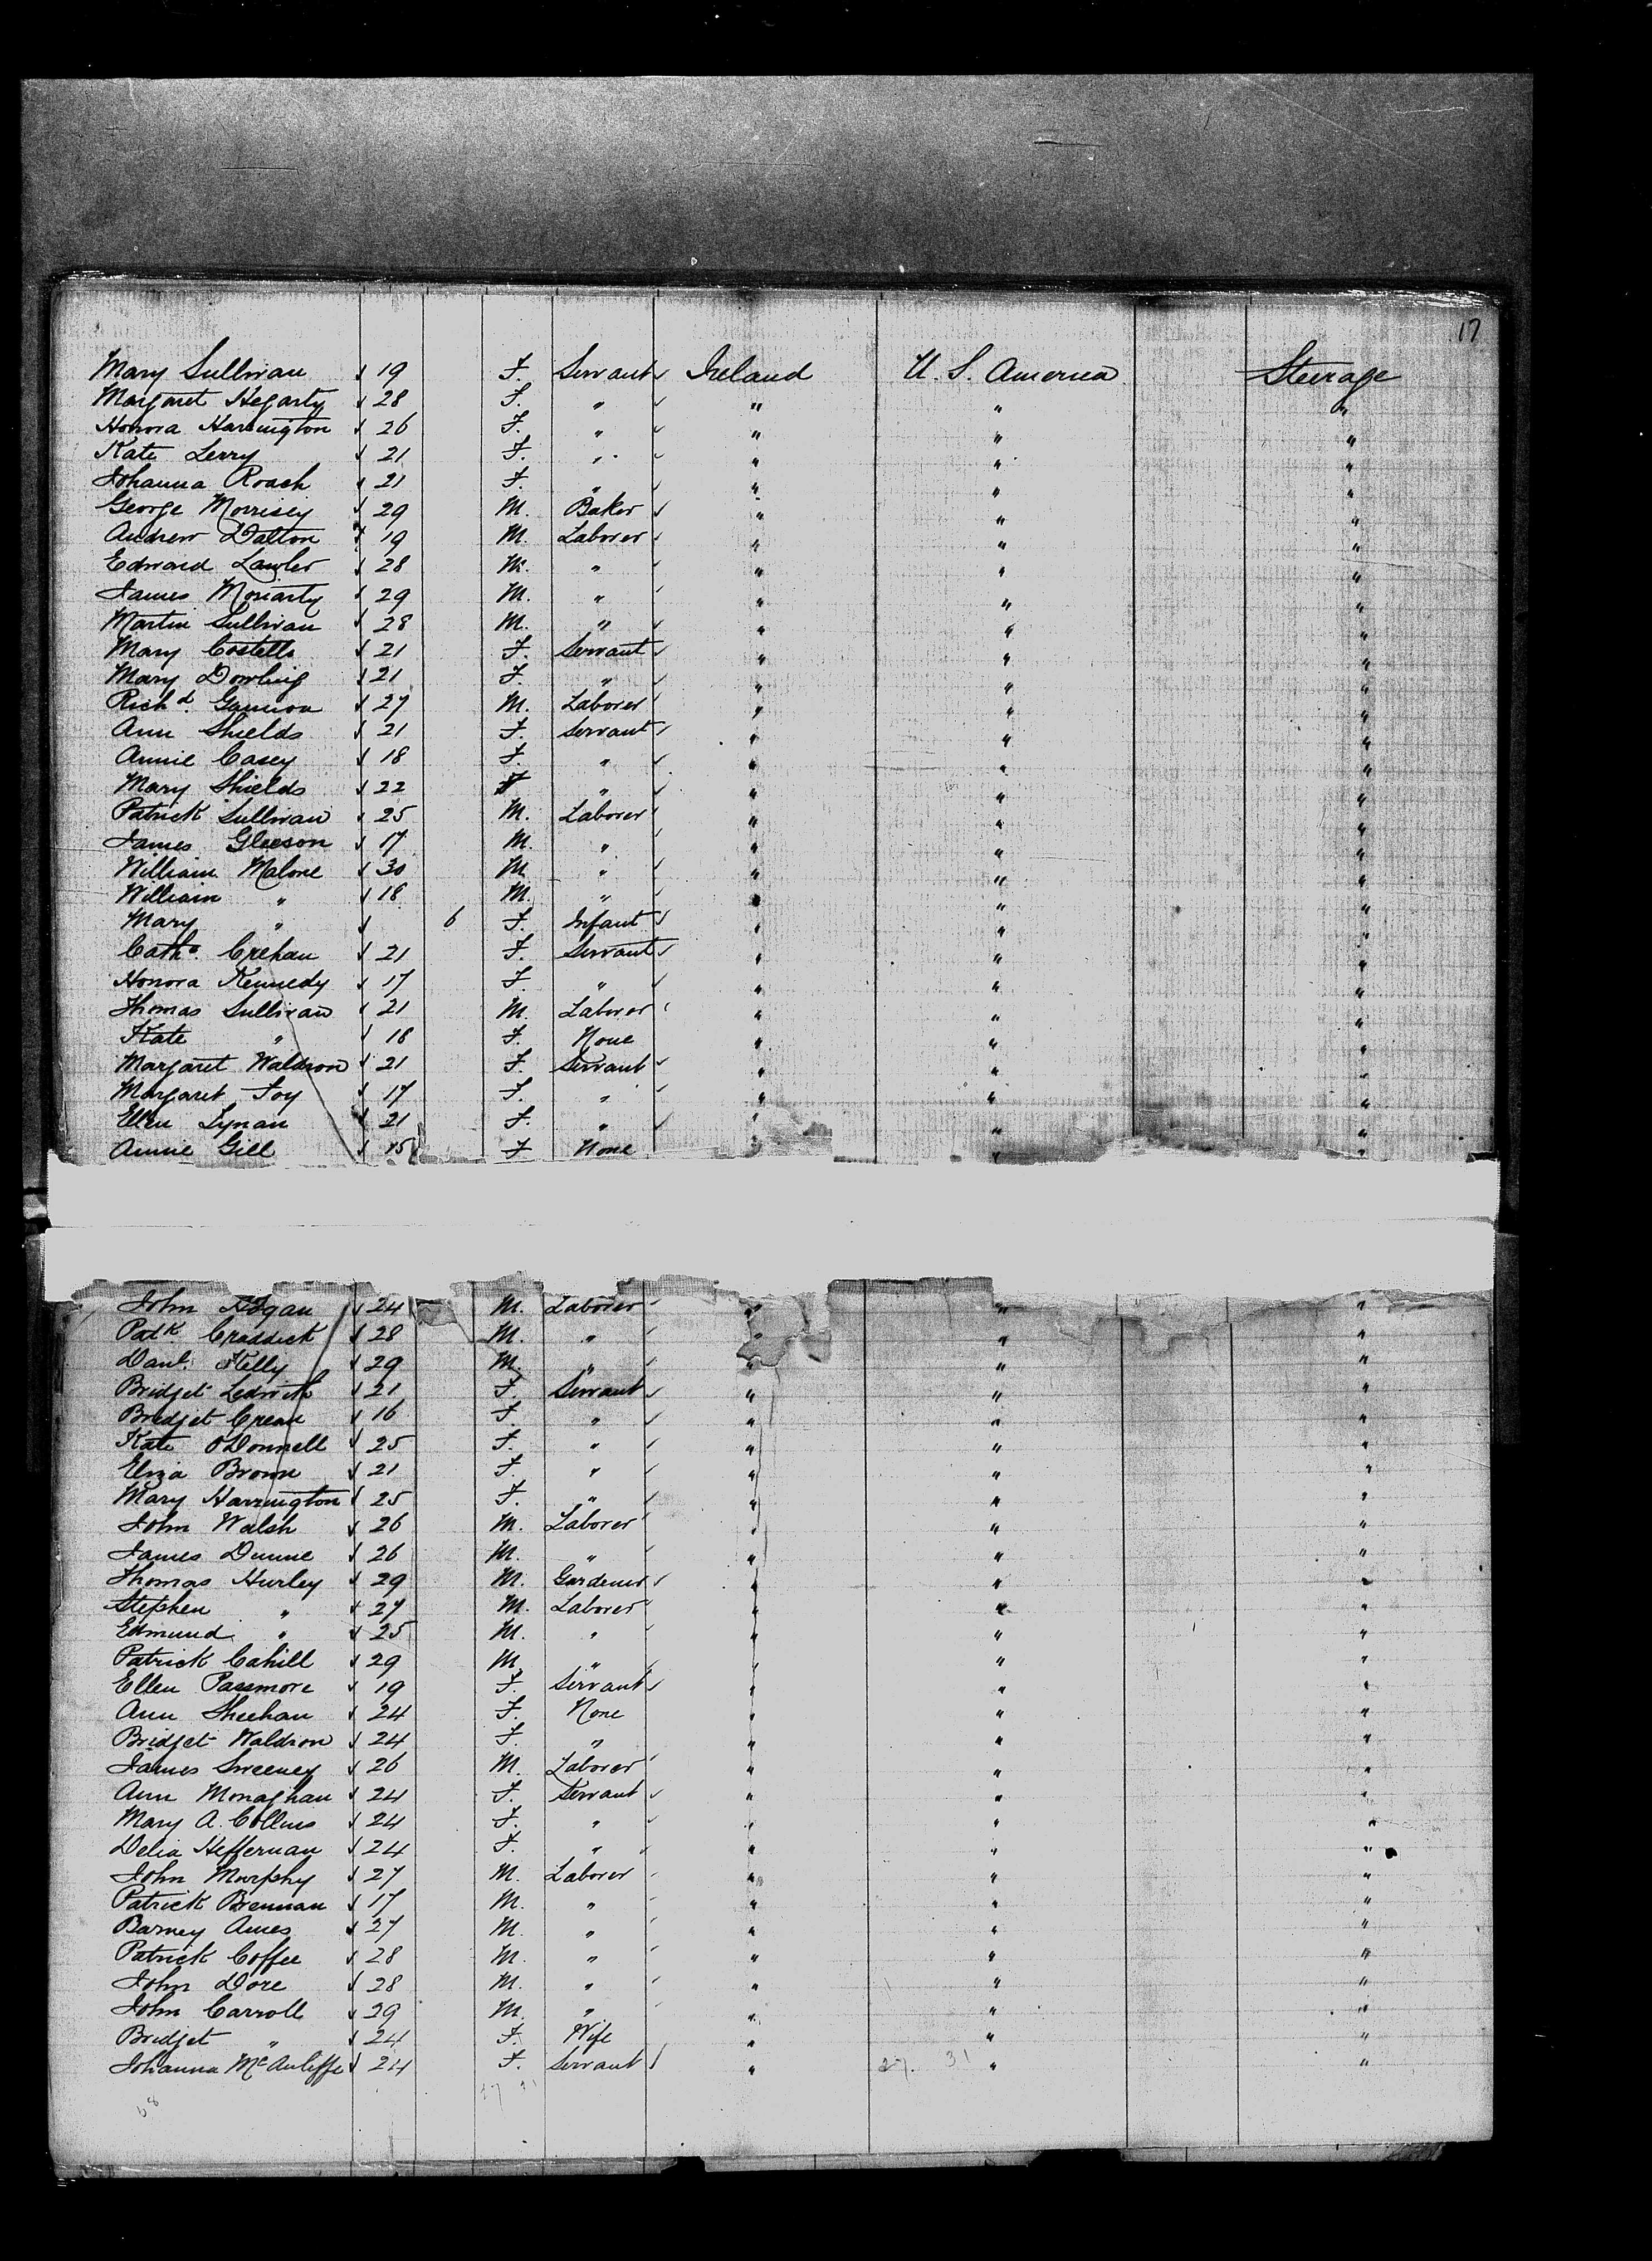 17
Mary Sullivan 19 F. Servant Ireland U. S. America Steerage
Margaret Hegarty 28 F. " " " "
Honora Harrington 26 F. " " " "
Kate Lerry 21 F. " " " "
Johanna Roach 21 F. " " " "
George Morrisey 29 M. Baker " " "
Andrew Dalton 19 M. Laborer " " "
Edward Lawler 28 M. " " " "
James Moriarty 29 M. " " " "
Martin Sullivan 28 M. " " " "
Mary Costello 21 F. Servant " " "
Mary Dowling 21 F. " " " "
Richd. Gannon 27 M. Laborer " " "
Ann Shields 21 F. Servant " " "
Annie Casey 18 F. " " " "
Mary Shields 22 F " " " "
Patrick Sullivan 25 M. Laborer " " "
James Gleeson 17 M. " " " "
William Malone 30 M " " " "
William " 18 M. " " " "
Mary " 6 F. Infant " " "
Cathe. Crehan 21 F. Servant " " "
Honora Kennedy 17 F. " " " "
Thomas Sullivan 21 M. Laborer " " "
Kate " 18 F. None " " "
Margaret Waldron 21 F. Servant " " "
Margaret Foy 17 F. " " " "
Ellen Lynan 21 F. " " " "
Annie Gill 15 F None " "
John Hogan 24 M. Laborer " " "
Patk Craddick 28 M. " " " "
Danl. Kelly 29 M. " " " "
Bridget Ledwith 21 F. Servant " " "
Bridget Crean 16 F. " " " "
Kate O'Donnell 25 F. " " " "
Eliza Brown 21 F. " " " "
Mary Harrington 25 F. " " " "
John Walsh 26 M. Laborer " " "
James Dunne 26 M. " " " "
Thomas Hurley 29 M. Gardener " " "
Stephen " 27 M. Laborer " " "
Edmund " 25 M. " " " "
Patrick Cahill 29 M. " " " "
Ellen Passmore 19 F. Servant " " "
Ann Sheehan 24 F. None " " "
Bridget Waldron 24 F. " " " "
James Sweeney 26 M. Laborer " " "
Ann Monaghan 24 F. Servant " " "
Mary A. Collins 24 F. " " " "
Delia Heffernan 24 F. " " " "
John Murphy 27 M. Laborer " " "
Patrick Brennan 17 M. " " " "
Barney Ames 27 M. " " " "
Patrick Coffee 28 M. " " " "
John Dore 28 M. " " " "
John Carroll 29 M. " " " "
Bridget " 24 F. Wife " " "
Johanna McAuliffe 24 F. Servant " 27. 31 " "
68